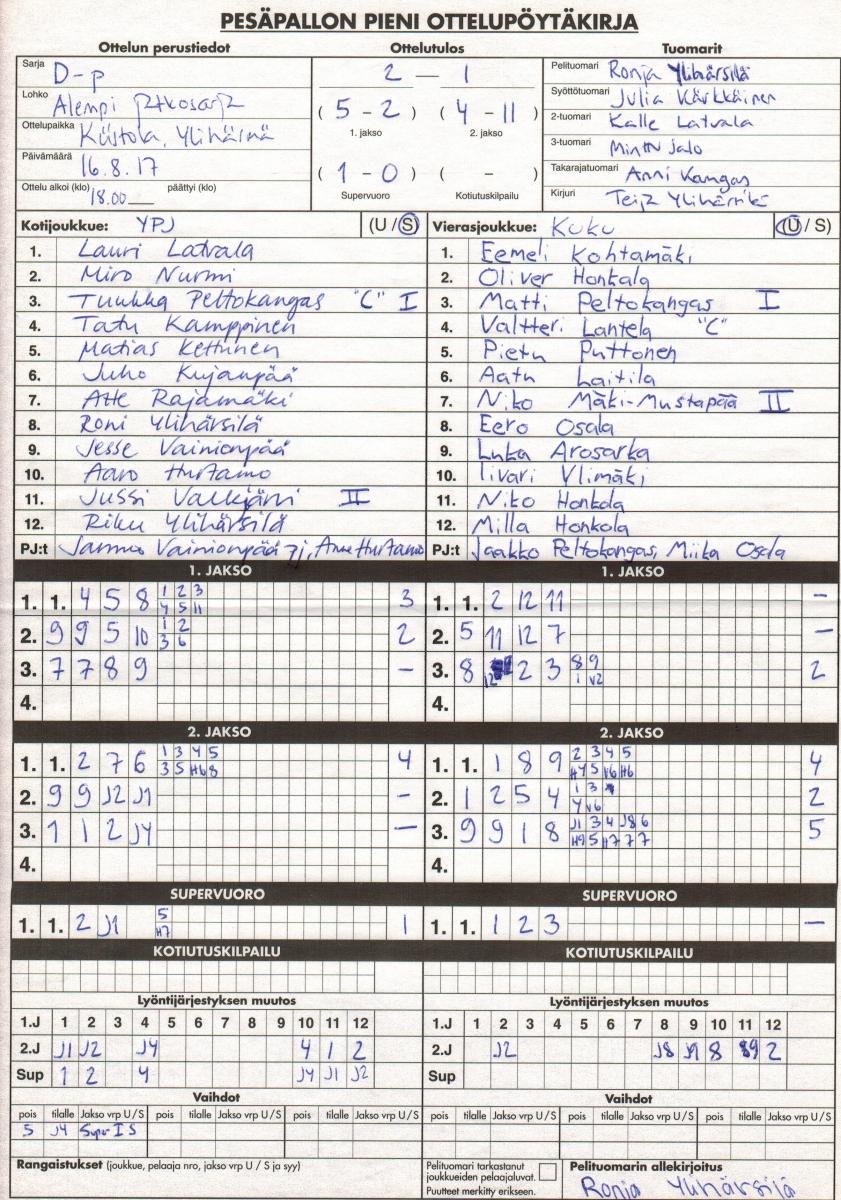 PESÄPALLON PIENI OTTELUPÖYTÄKIRJA
Ottelun perustiedot Ottelutulos Tuomarit
Sarja D-p 2 — 1 Pelituomari Ronja Ylihärsilä
Lohko Alempi jatkosarja ( 5 - 2 ) ( 4 - 11 ) Syöttötuomari Julia Kärkkäinen
1. jakso 2. jakso
Ottelupaikka Kiistola, Ylihärmä 2-tuomari Kalle Latvala
Päivämäärä 16.8.17 3-tuomari Minttu Jalo
( 1 - 0 ) ( - ) Takarajatuomari Anni Kangas
Ottelu alkoi (klo) 18.00 päättyi (klo) Supervuoro Kotiutuskilpailu Kirjuri Teija Ylihärsilä
Kotijoukkue: YPJ (U / S) Vierasjoukkue: KuKu (U / S)
1. Lauri Latvala 1. Eemeli Kohtamäki
2. Miro Nurmi 2. Oliver Honkala
3. Tuukka Peltokangas "C" I 3. Matti Peltokangas I
4. Tatu Kamppinen 4. Valtteri Lantela "C"
5. Matias Kettunen 5. Pietu Puttonen
6. Juho Kujanpää 6. Aatu Laitila
7. Atte Rajamäki 7. Niko Mäki-Mustapää II
8. Roni Ylihärsilä 8. Eero Osala
9. Jesse Vainionpää 9. Luka Arosarka
10. Aaro Hurtamo 10. Iivari Ylimäki
11. Jussi Valkjärvi II 11. Niko Honkola
12. Riku Ylihärsilä 12. Milla Honkola
PJ:t Jarmo Vainionpää Hurtamo PJ:t Jaakko Peltokangas, Miika Osala
1. JAKSO 1. JAKSO
1. 1. 4 5 8 1 2 3 3 1. 1. 2 12 11 –
4 5 11
2. 9 9 5 10 1 2 2 2. 5 11 12 7 –
3 6
3. 7 7 8 9 – 3. 8 12 2 3 8 9 2
1 V2
4. 4.
2. JAKSO 2. JAKSO
1. 1. 2 7 6 1 3 4 5 4 1. 1. 1 8 9 2 3 4 5 4
3 5 H6 8 H4 5 V6 H6
2. 9 9 J2 J1 – 2. 1 2 5 4 1 3 2
4 V6
3. 1 1 2 J4 – 3. 9 9 1 8 J1 3 4 J8 6 5
H9 5 H7 7 7
4. 4.
SUPERVUORO SUPERVUORO
1. 1. 2 J1 5 1 1. 1. 1 2 3 –
H7
KOTIUTUSKILPAILU KOTIUTUSKILPAILU
Lyöntijärjestyksen muutos Lyöntijärjestyksen muutos
1.J 1 2 3 4 5 6 7 8 9 10 11 12 1.J 1 2 3 4 5 6 7 8 9 10 11 12
2.J J1 J2 J4 4 1 2 2.J J2 J8 J9 8 9 2
Sup 1 2 4 J4 J1 J2 Sup
Vaihdot Vaihdot
pois tilalle Jakso vrp U / S pois tilalle Jakso vrp U / S pois tilalle Jakso vrp U / S pois tilalle Jakso vrp U / S pois tilalle Jakso vrp U / S pois tilalle Jakso vrp U / S
5 J4 Super I S
Rangaistukset (joukkue, pelaaja nro, jakso vrp U / S ja syy) Pelituomari tarkastanut Pelituomarin allekirjoitus
joukkueiden pelaajaluvat.
Puutteet merkitty erikseen. Ronja Ylihärsilä